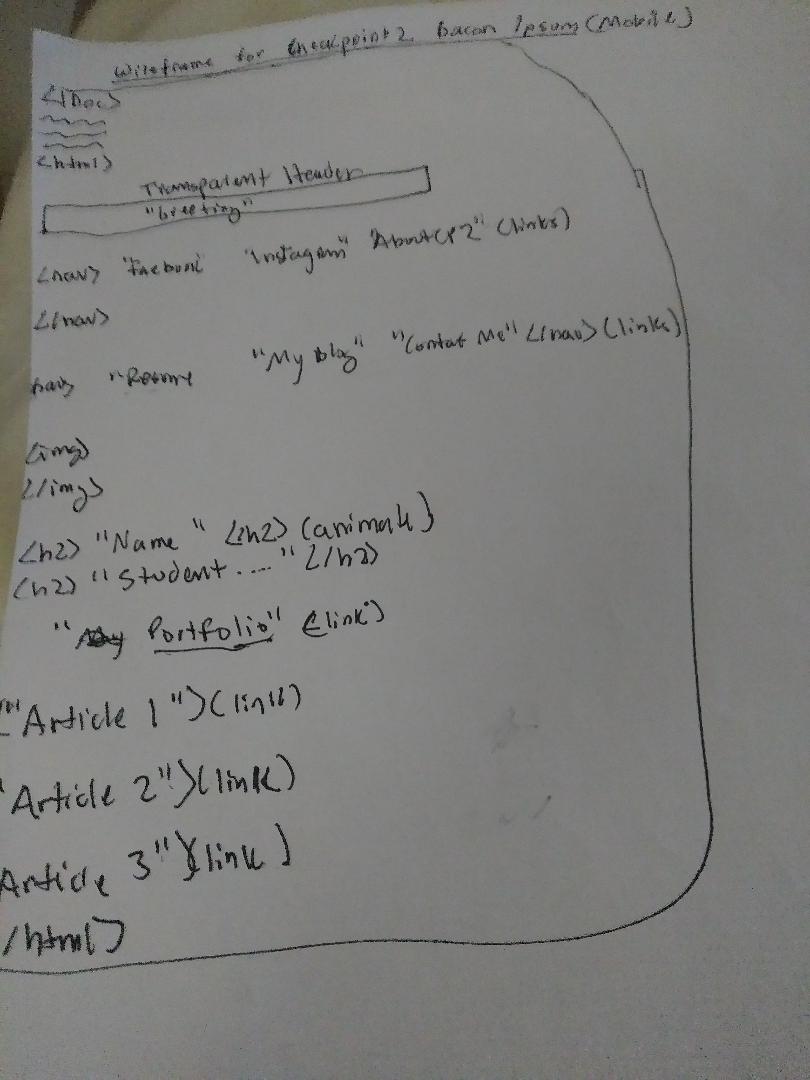 Wireframe for Checkpoint 2 Bacon Ipsum (Mobile)
<!Doc>
<html>
Transparent Header
"Greeting"
<nav> "Facbook" "Instagam" "About CP2" (links)
</nav>
nav> "Resume "My blog" "Contat Me" </nav> (links)
<img>
</img>
<h2> "Name" </h2>
<h2> "Student...." </h2>
"My Portfolio" (link)
"Article 1")(link)
"Article 2")(link)
Article 3")(link)
/html>